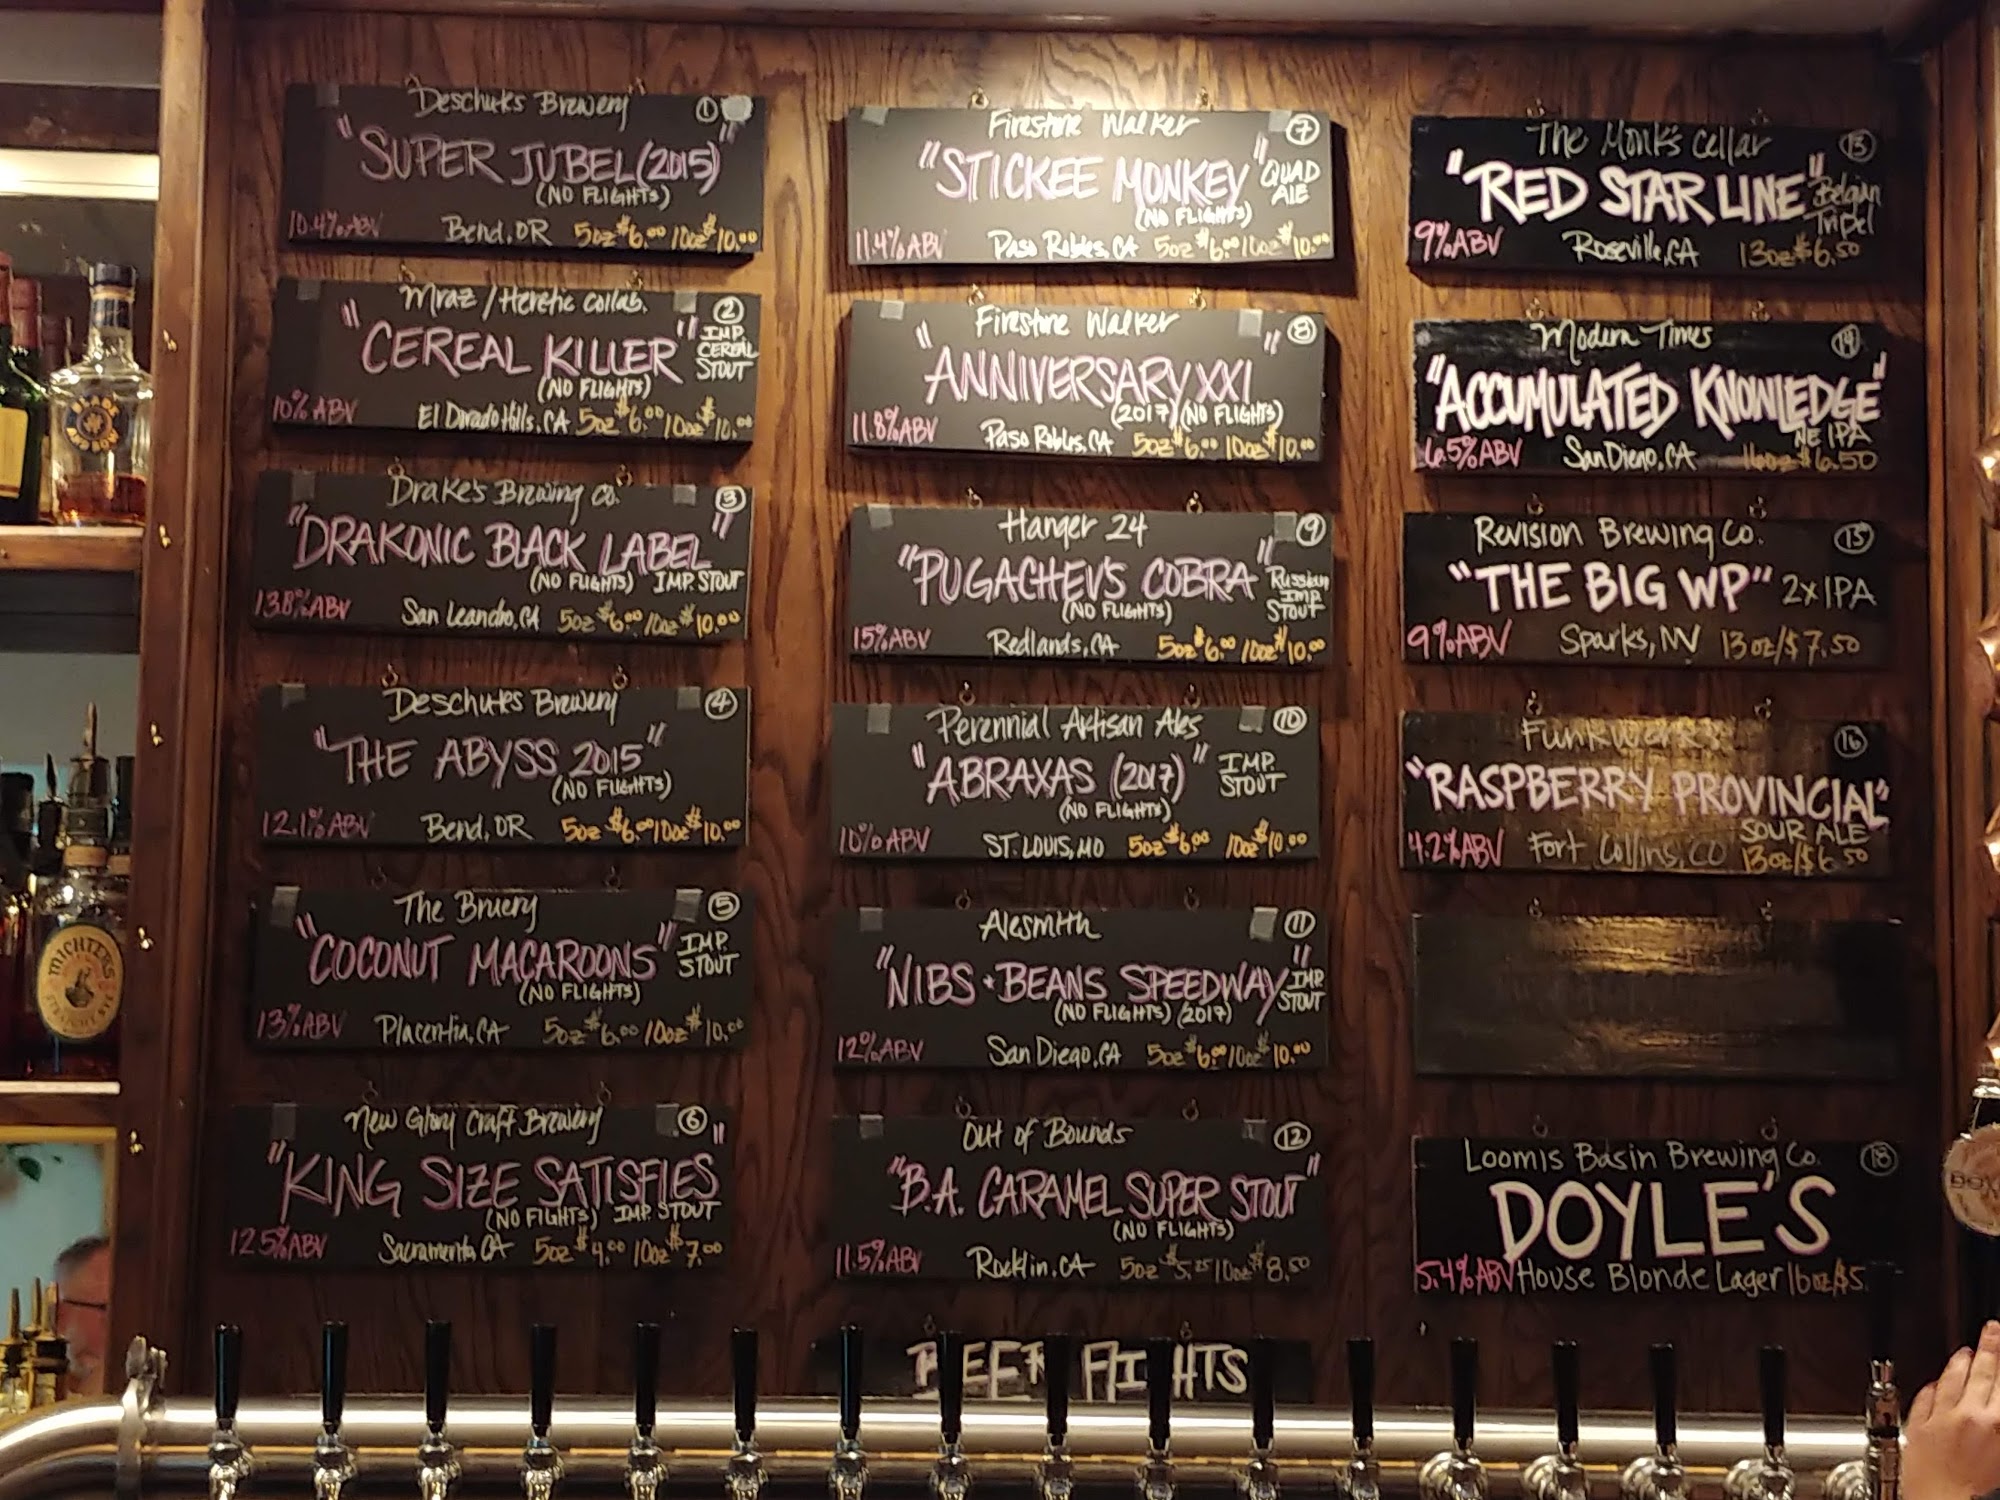 Deschutes Brewery ①
"SUPER JUBEL (2015)"
(NO FLIGHTS)
10.4% ABV Bend, OR 5oz $6.00 10oz $10.00
Mraz / Heretic Collab. ②
"CEREAL KILLER" IMP. CEREAL STOUT
(NO FLIGHTS)
10% ABV El Dorado Hills, CA 5oz $6.00 10oz $10.00
Drake's Brewing Co. ③
"DRAKONIC BLACK LABEL"
(NO FLIGHTS) IMP. STOUT
13.8% ABV San Leandro, CA 5oz $6.00 10oz $10.00
Deschutes Brewery ④
"THE ABYSS 2015"
(NO FLIGHTS)
12.1% ABV Bend, OR 5oz $6.00 10oz $10.00
The Bruery ⑤
"COCONUT MACAROONS" IMP. STOUT
(NO FLIGHTS)
13% ABV Placentia, CA 5oz $6.00 10oz $10.00
New Glory Craft Brewery ⑥
"KING SIZE SATISFIES"
(NO FIGHTS) IMP. STOUT
12.5% ABV Sacramento, CA 5oz $4.00 10oz $7.00
Firestone Walker ⑦
"STICKEE MONKEY" QUAD ALE
(NO FLIGHTS)
11.4% ABV Paso Robles, CA 5oz $6.00 10oz $10.00
Firestone Walker ⑧
"ANNIVERSARY XXI"
(2017) (NO FLIGHTS)
11.8% ABV Paso Robles, CA 5oz $6.00 10oz $10.00
Hanger 24 ⑨
"PUGACHEV'S COBRA" Russian IMP. STOUT
(NO FLIGHTS)
15% ABV Redlands, CA 5oz $6.00 10oz $10.00
Perennial Artisan Ales ⑩
"ABRAXAS (2017)" IMP. STOUT
(NO FLIGHTS)
10% ABV ST. LOUIS, MO 5oz $6.00 10oz $10.00
Alesmith ⑪
"NIBS + BEANS SPEEDWAY" IMP. STOUT
(NO FLIGHTS) (2017)
12% ABV San Diego, CA 5oz $6.00 10oz $10.00
Out of Bounds ⑫
"B.A. CARAMEL SUPER STOUT"
(NO FLIGHTS)
11.5% ABV Rocklin, CA 5oz $5.25 10oz $8.50
The Monk's Cellar ⑬
"RED STAR LINE" Belgian Tripel
9% ABV Roseville, CA 13oz $6.50
Modern Times ⑭
"ACCUMULATED KNOWLEDGE"
NE IPA
6.5% ABV San Diego, CA 16oz $6.50
Revision Brewing Co. ⑮
"THE BIG WP" 2x IPA
9% ABV Sparks, NV 13oz/$7.50
Funkwerks ⑯
"RASPBERRY PROVINCIAL"
SOUR ALE
4.2% ABV Fort Collins, CO 13oz/$6.50
Loomis Basin Brewing Co. ⑱
DOYLE'S
5.4% ABV House Blonde Lager 16oz/$5.
BEER FLIGHTS
BLADE AND BOW
MICHTER'S
STRAIGHT RYE